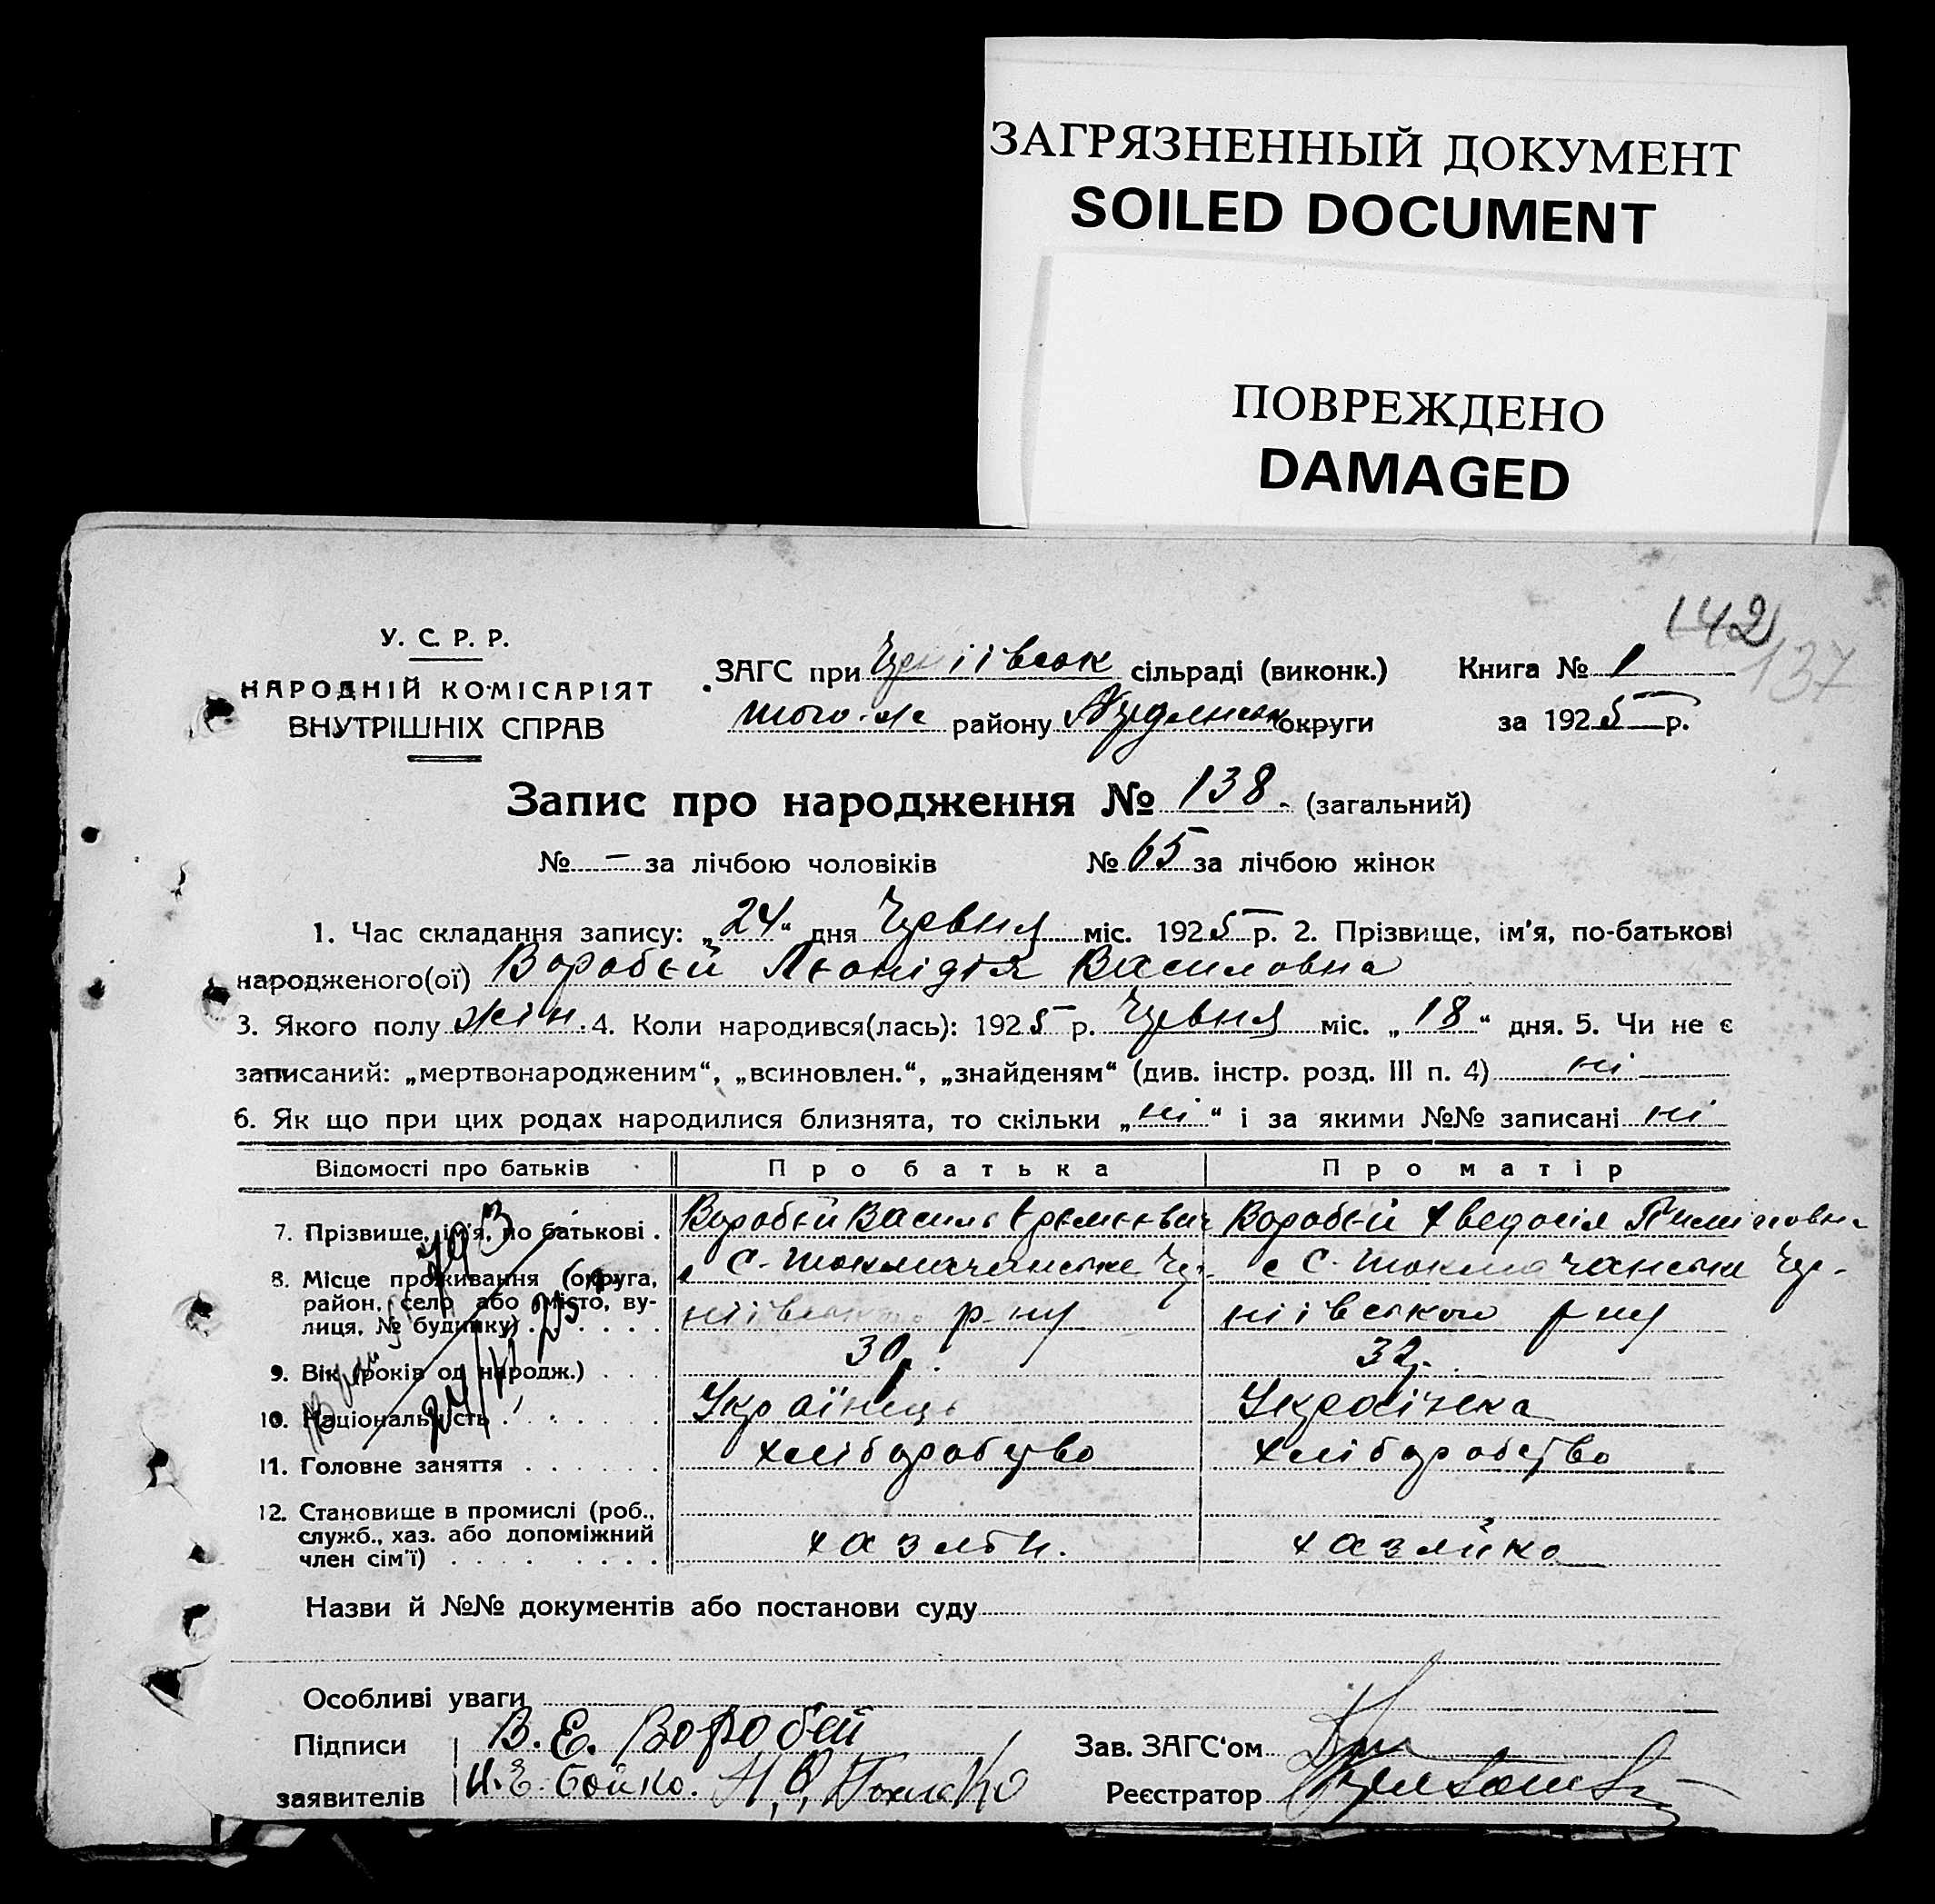 ЗАГРЯЗНЕННЫЙ ДОКУМЕНТ
SOILED DOCUMENT
ПОВРЕЖДЕНО
DAMAGED
142
137
У. С. Р. Р.
НАРОДНІЙ КОМІСАРІЯТ
ВНУТРІШНІХ СПРАВ
ЗАГС при сільраді (виконк.)
того-же району округи
Книга № 1
за 1925 р.
Запис про народження № 138. (загальний)
№ – за лічбою чоловіків № 65 за лічбою жінок
1. Час складання запису: „24“ дня Червня міс. 1925 р. 2. Прізвище, ім'я, по-батькові
народженого(ої) Воробєй Лєонідія Василовна
3. Якого полу жін. 4. Коли народився(лась): 1925 р. Червня міс. „18“ дня. 5. Чи не є
записаний: „мертвонародженим“, „всиновлен.“, „знайденям“ (див. інстр. розд. III п. 4) ні
6. Як що при цих родах народилися близнята, то скільки „ні“ і за якими №№ записані ні
Відомості про батьків Про батька Про матір
7. Прізвище, ім'я, по батькові . Воробєй Василь Єрємєєвич Воробєй Хведосія
8. Місце проживання (округа, район, село або місто, ву- лиця, № будинку) с С-Токмачанське Чер- с С-Токмачанське Чер-
ніівського р-ну ніівського р-ну
9. Вік (років од народж.) . . . 30р. 32р.
10. Національність . . . . . Українець Українка
11. Головне заняття . . . . . . хліборобство хліборобство
12. Становище в промислі (роб., служб., хаз. або допоміжний член сім'ї) . . . . . . . . хазяїн. хазяйка
793
Назви й №№ документів або постанови суду
Особливі уваги
Підписи В. Е. Воробей Зав. ЗАГС'ом
заявителів И. Е. Бойко. Реєстратор